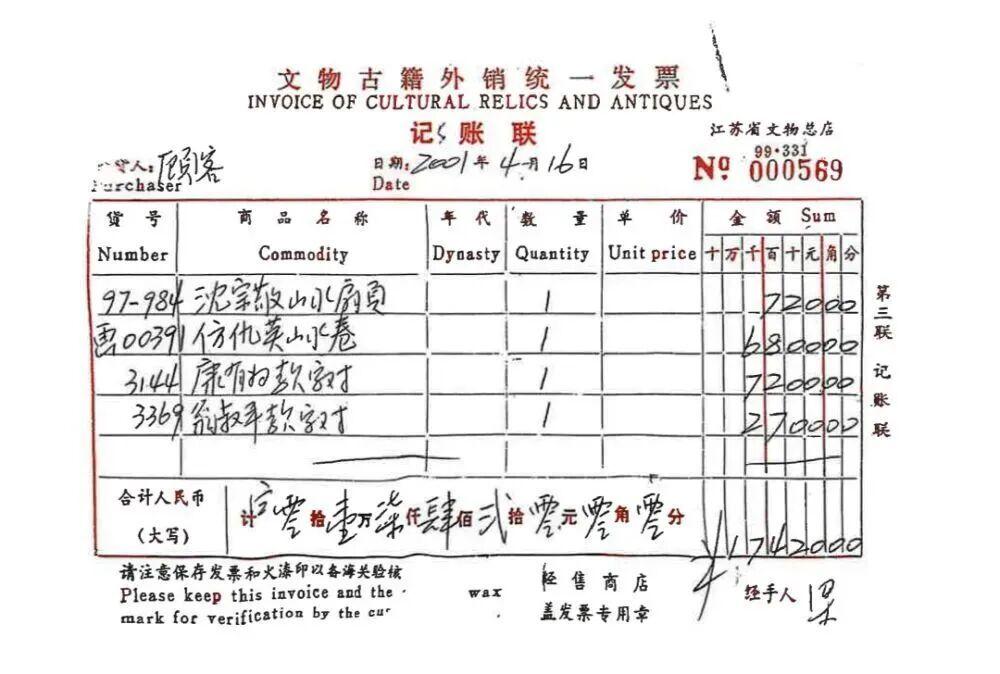 文物古籍外销统一发票
INVOICE OF CULTURAL RELICS AND ANTIQUES
记账联
江苏省文物总店
货人: 顾客
Purchaser
日期: 2001年4月16日
Date
99·331
Nº 000569
货号 商品名称 年代 数量 单价 金额 Sum
Number Commodity Dynasty Quantity Unit price 十万千百十元角分
97-984 沈宗敬山水扇页 1 72000
画00391 仿仇英山水卷 1 680000
3144 康有为款字对 1 720000
3369 翁叔平款字对 1 270000
合计人民币
(大写)
计 零拾壹万柒仟肆佰贰拾零元零角零分
¥1742000
请注意保存发票和火漆印以备海关验核
Please keep this invoice and the wax
mark for verification by the cus
经售商店
盖发票专用章
经手人
第三联 记账联